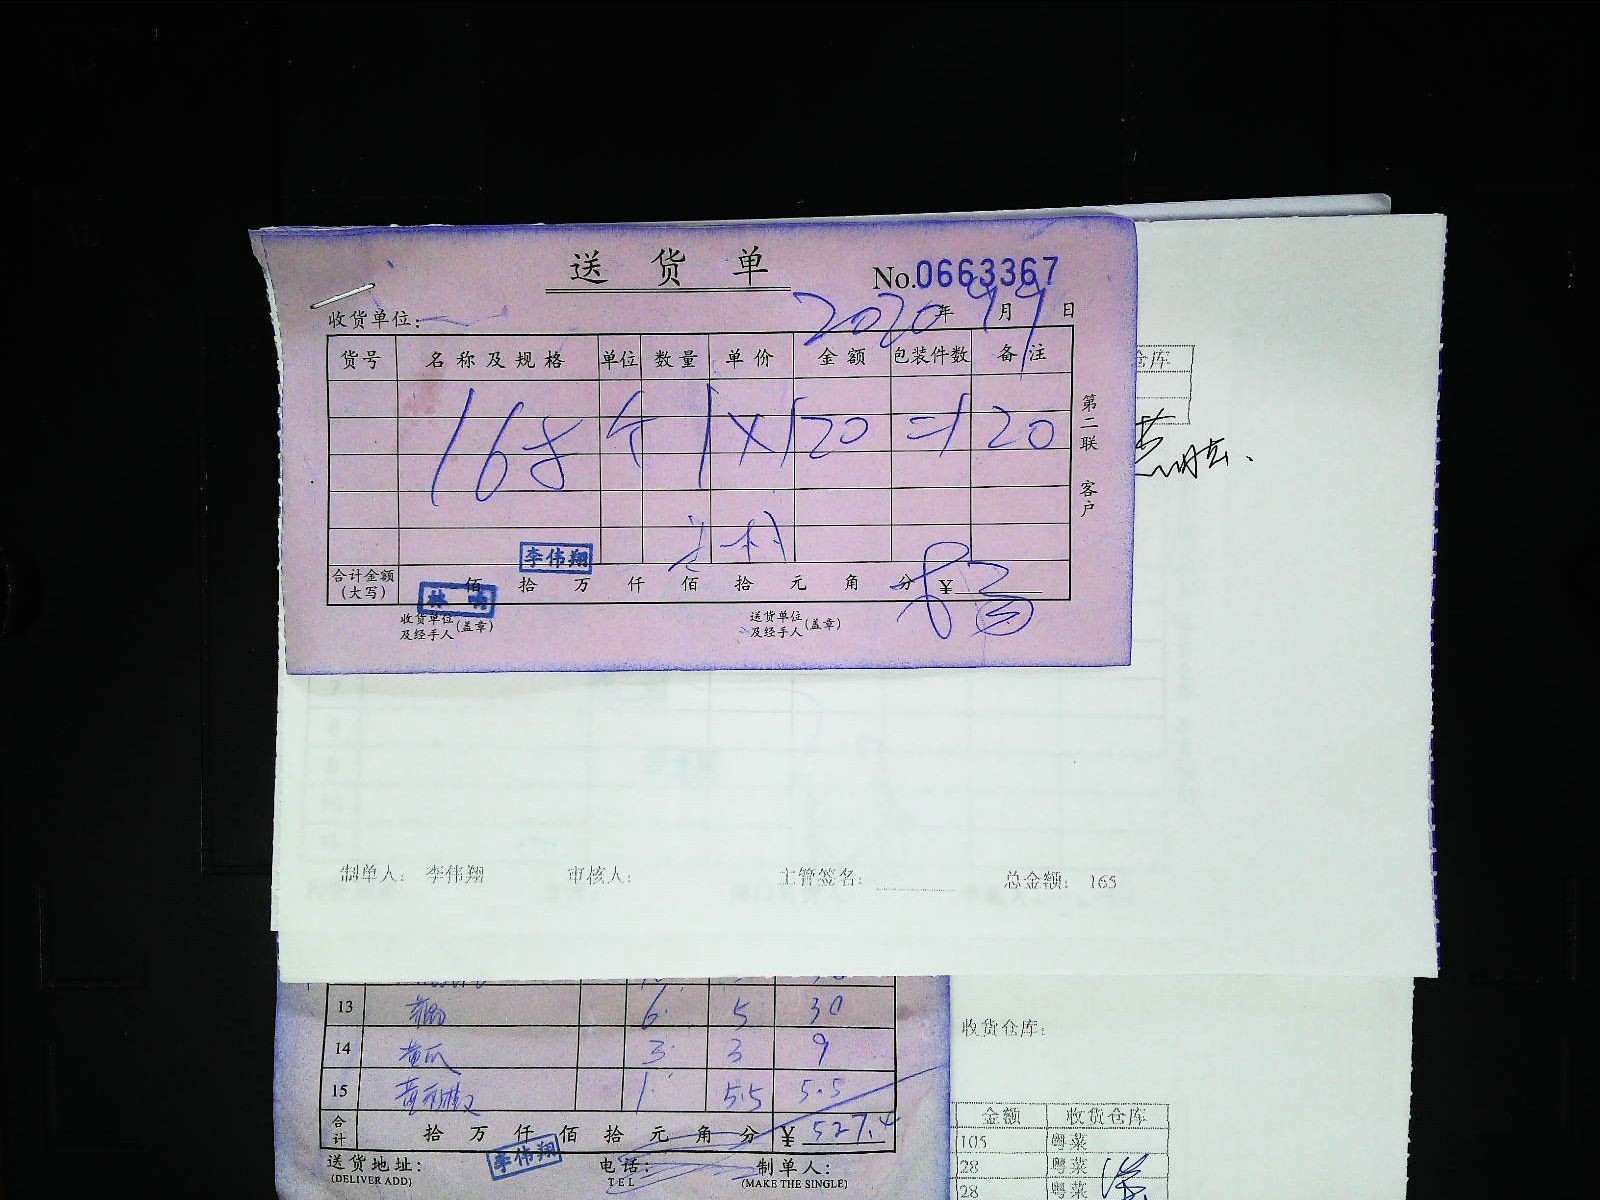 送货单
No.0663367
收货单位:
2020年9月9日
仓库
货号 名称及规格 单位 数量 单价 金额 包装件数 备注
1 × 120 = 120
第二联 客户
李伟翔
合计金额(大写) 佰 拾 万 仟 佰 拾 元 角 分 ¥
收货单位及经手人(盖章) 送货单位及经手人(盖章)
制单人: 李伟翔 审核人: 主管签名: 总金额: 165
13 6 5 30
14 黄瓜 3 3 9
15 1 5.5 5.5
合计 拾 万 仟 佰 拾 元 角 分 ¥ 527.4
送货地址: 李伟翔 电话: 制单人:
(DELIVER ADD) TEL (MAKE THE SINGLE)
收货仓库:
金额 收货仓库
105 粤菜
28 粤菜
28 粤菜